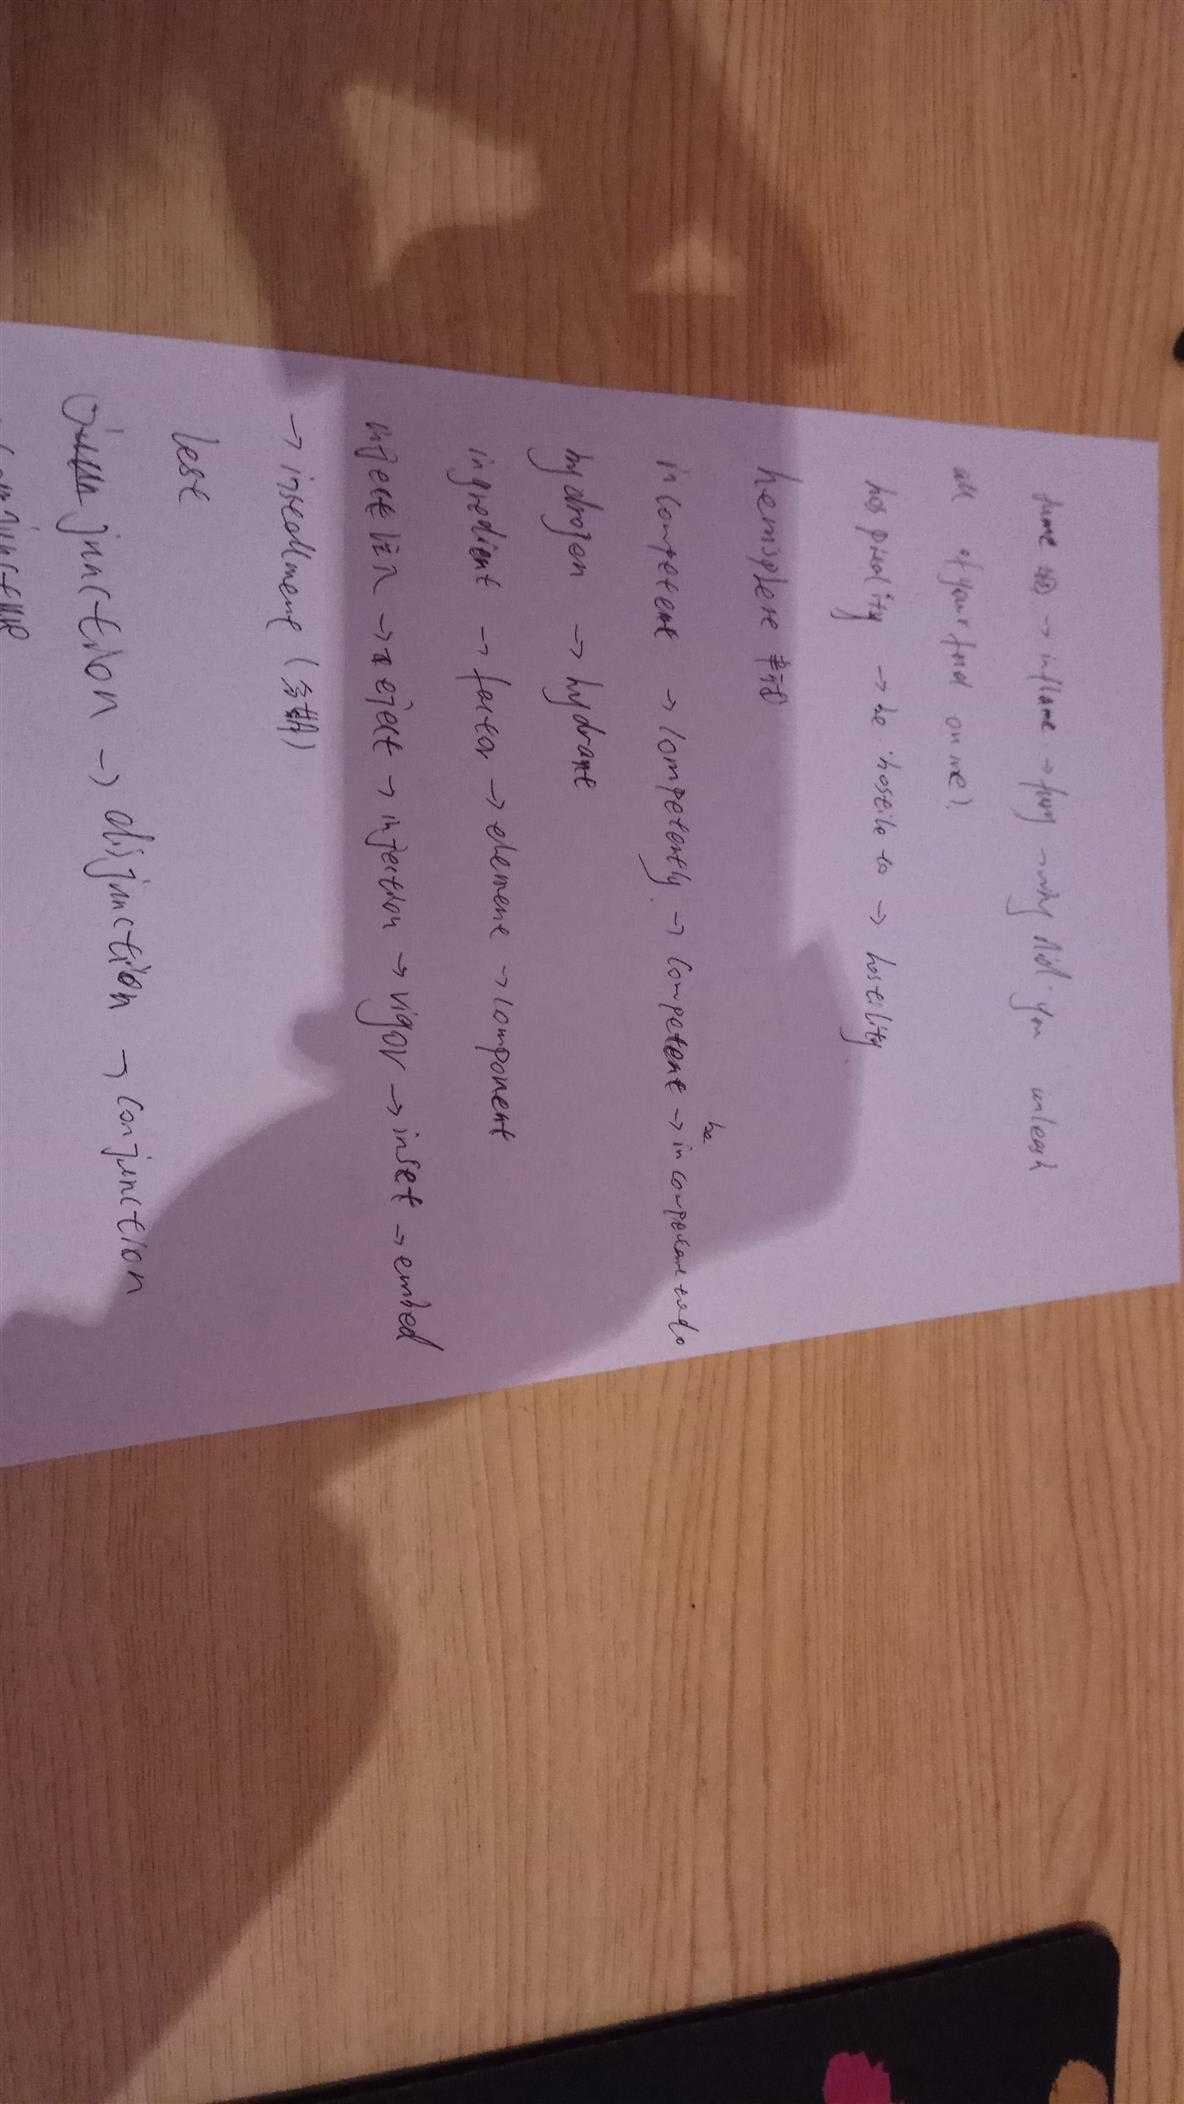 flame → inflame → fury → why did you unleash
all of your on me?
hospitality → be hostile to → hostility
hemisphere 半球
incompetent → competently → competent → be incompetent to do
hydrogen → hydrant
ingredient → factor → element → component
inject 注入 → eject → injection → vigor → inset → embed
→ installment (分期)
lest
junction → disjunction → conjunction